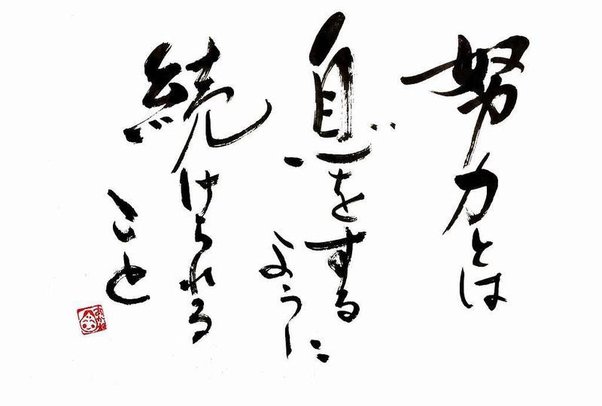 努力とは
息をする
ように
続けられる
こと